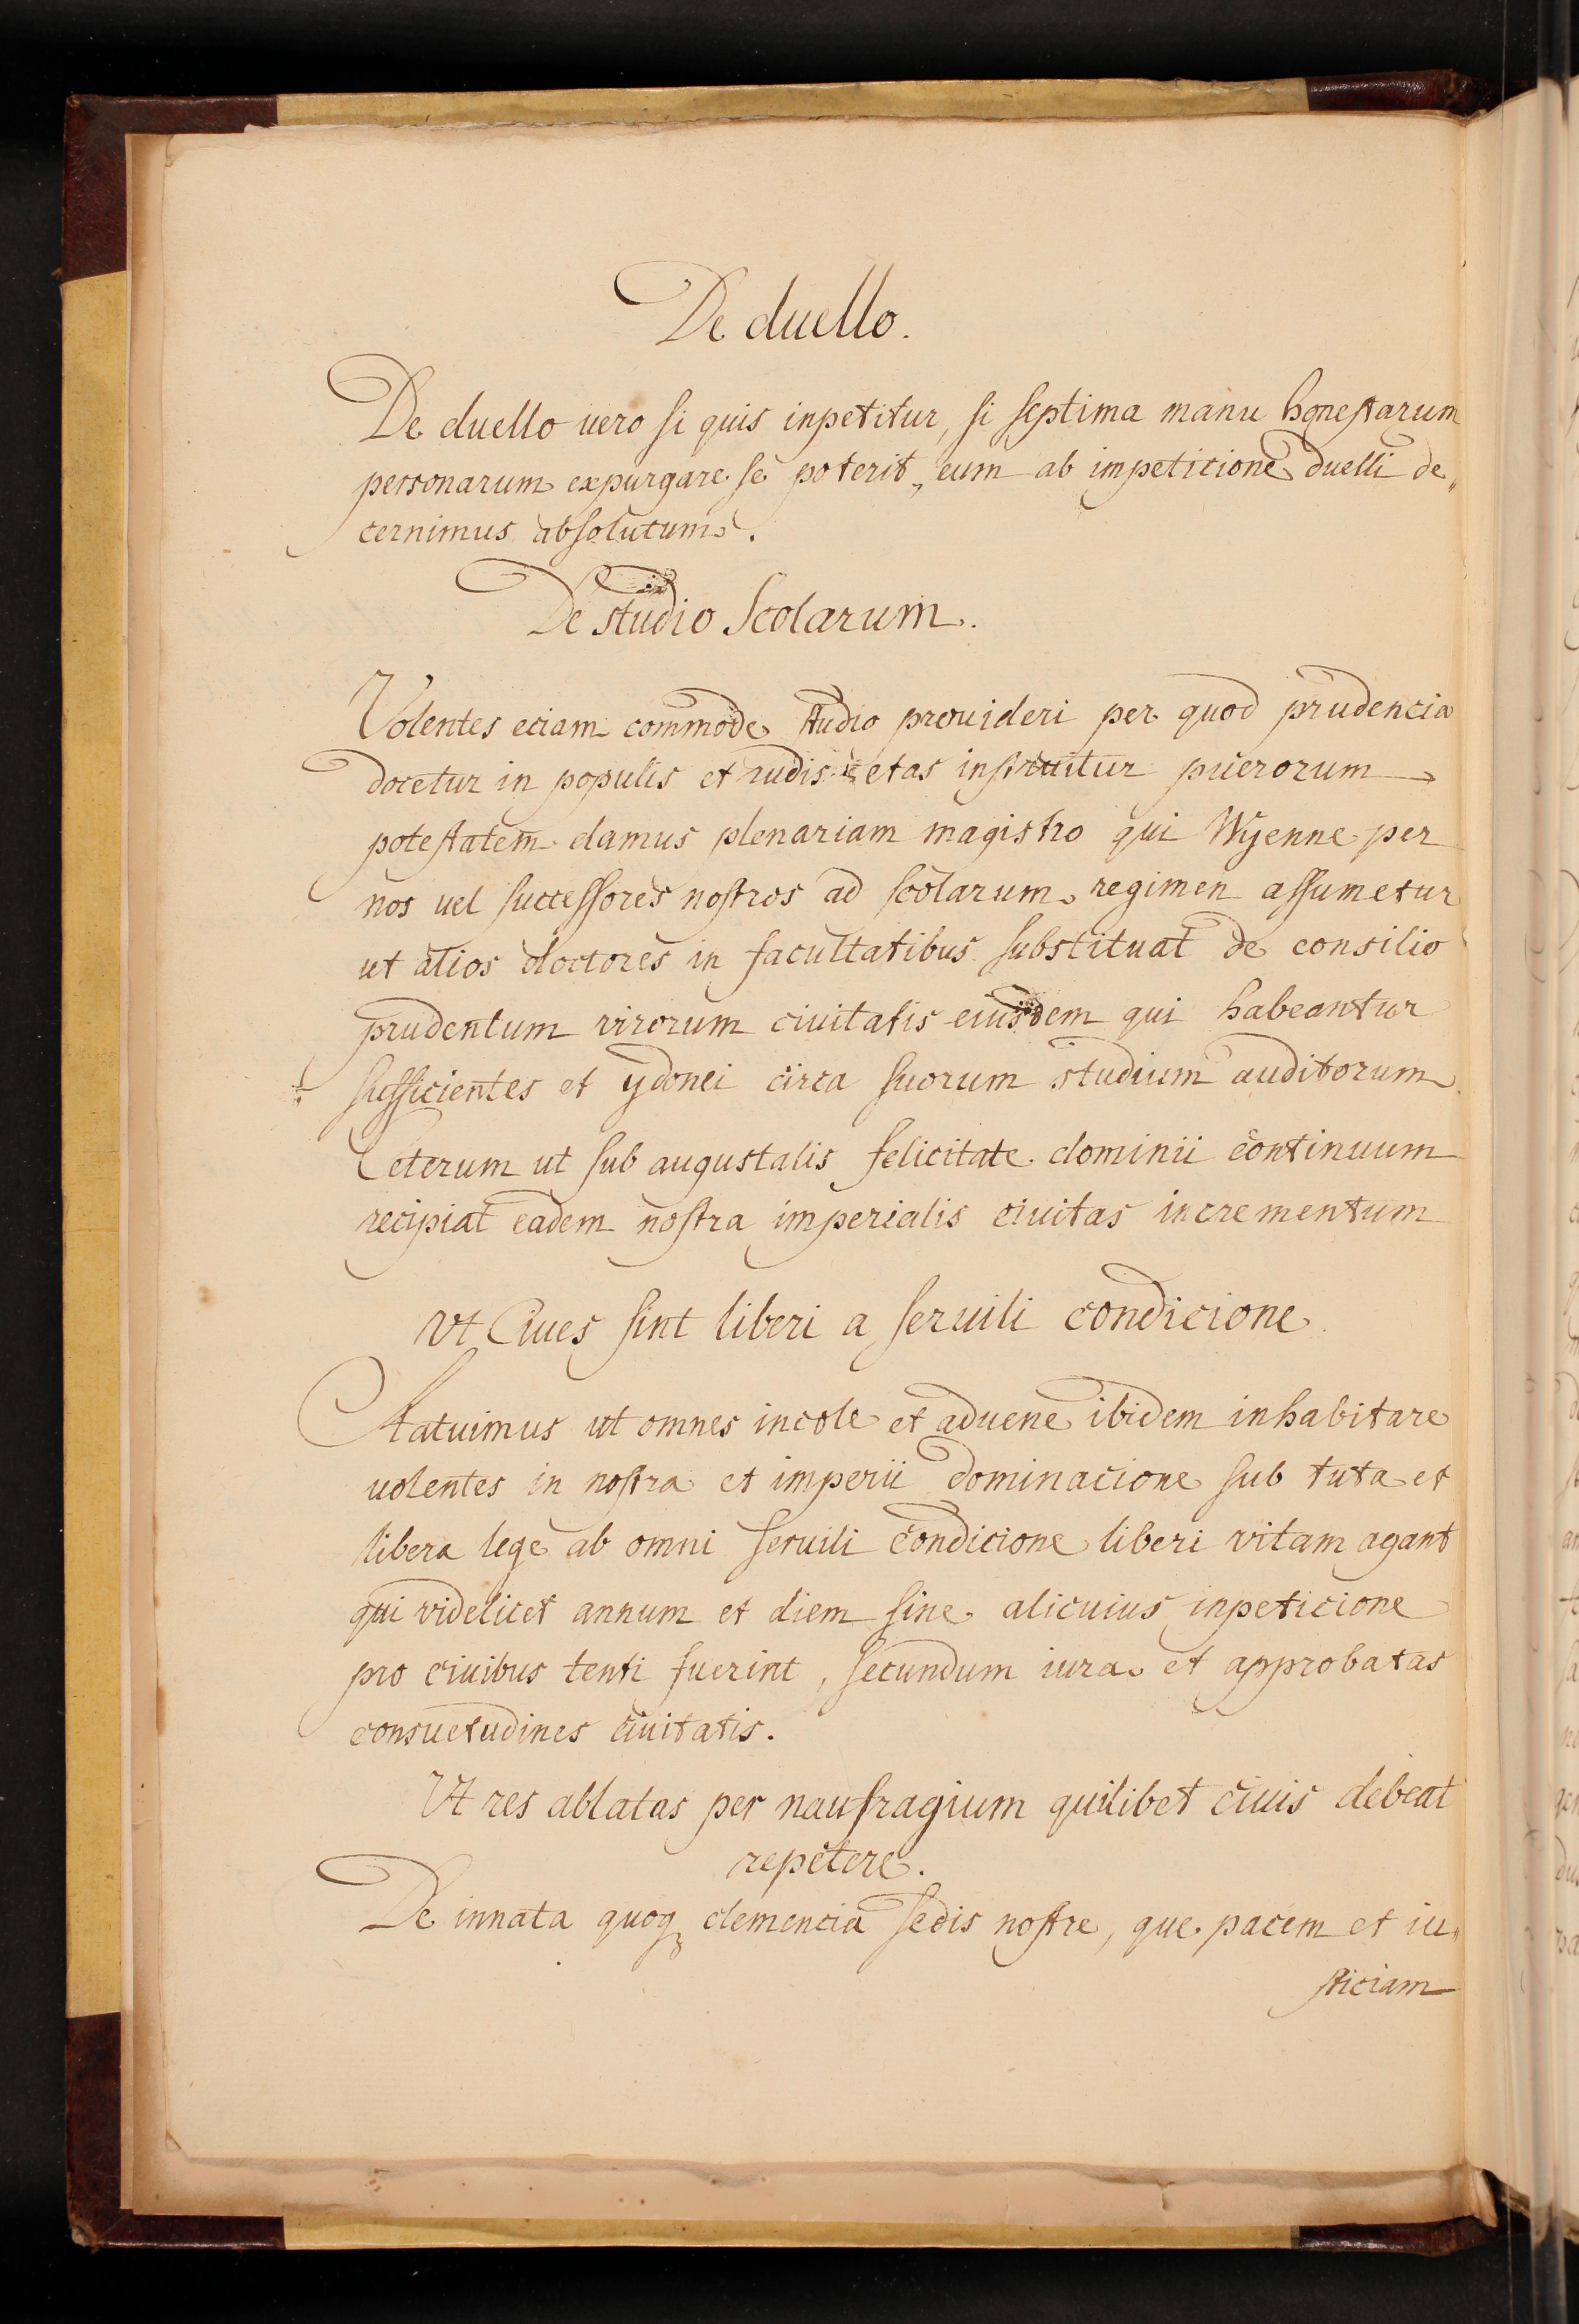 De duello.
De duello uero si quis inpetitur, si septima manu honestarum
personarum expurgare se poterit, eum ab impeticione duelli de„
cernimus absolutum.
De studio Scolarum.
Volentes eciam commode studio prouideri per quod prudencia
docetur in populis et rudis etas instruitur puerorum
potestatem damus plenariam magistro qui Wyenne per
nos uel successores nostros ad scolarum regimen assumetur
ut alios doctores in facultatibus substituat de consilio
prudentum virorum ciuitatis eiusdem qui habeantur
sufficientes et ydonei circa suorum studium auditorum
Ceterum ut sub augustalis felicitate dominii continuum
recipiat eadem nostra imperialis ciuitas incrementum
Vt Ciues sint liberi a seruili condicione
Statuimus ut omnes incole et aduene ibidem inhabitare
uolentes in nostra et imperii dominacione sub tuta et
libera lege ab omni seruili condicione liberi vitam agant
qui videlicet annum et diem sine alicuius inpeticione
pro ciuibus tenti fuerint, secundum iura et approbatas
consuetudines ciuitatis.
Vt res ablatas per naufragium quilibet ciuis debeat
repetere.
De innata quoqȝ clemencia sedis nostre, que pacem et iu„
sticiam